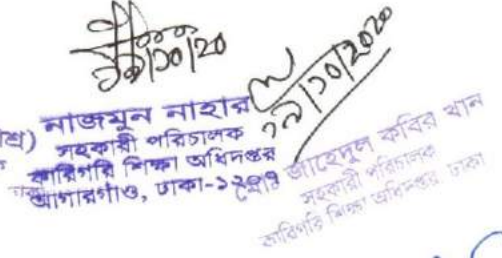 ২৯/১০/২০
২৯/১০/২০২০
নাজমুন নাহার
সহকারী পরিচালক
কারিগরি শিক্ষা অধিদপ্তর
আগারগাঁও, ঢাকা-১২০৭
মোঃ জাহেদুল কবির খান
সহকারী পরিচালক
কারিগরি শিক্ষা অধিদপ্তর, ঢাকা